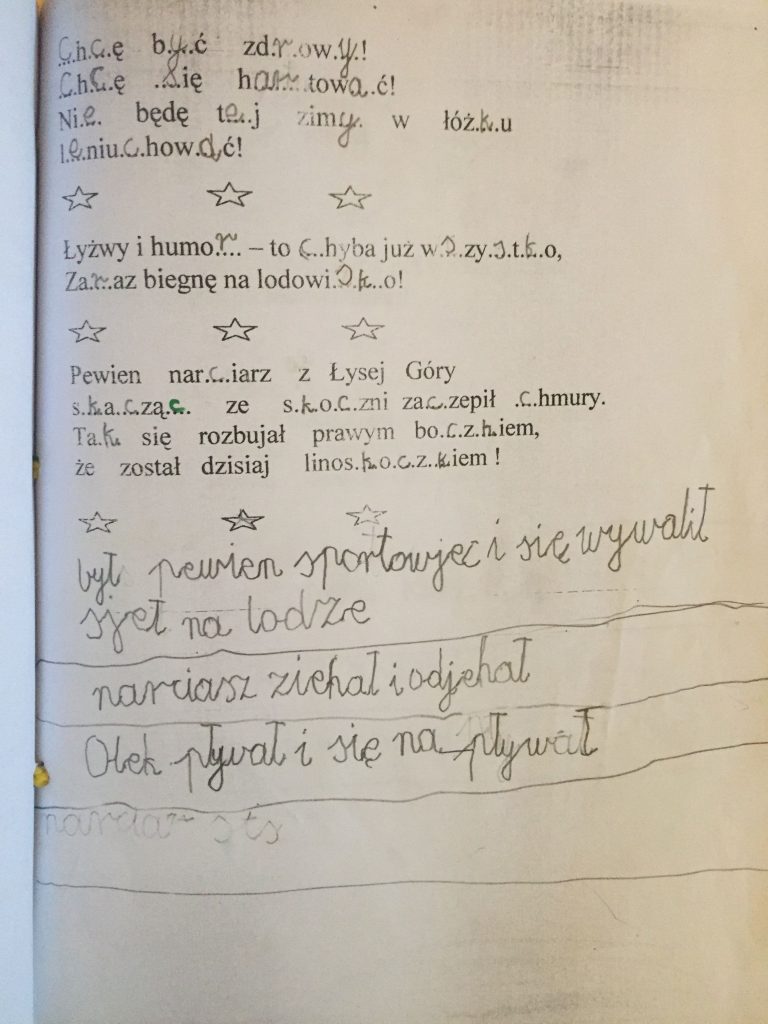 C.h.c.ę b.y.ć zd.r.ow.y.!
C.h.c.ę .s.ię h.ar..towa.ć!
Ni.e. będę te..j zimy. w łóż.k.u
l.e.niu.c.how.a.ć!
Łyżwy i humo.r.. – to c..hyba już w.s.zy.s.t.k.o,
Za.r..az biegnę na lodowi.s.k..o!
Pewien nar.c.iarz z Łysej Góry
s.k.a.c.zą.c. ze s.k.o.c.zni zac.zepił .c.hmury.
Ta.k. się rozbujał prawym bo.c.z.k.iem,
że został dzisiaj linos.k.o.c.z..kiem !
był pewien sportowjec i się wywalił
sjeł na lodze
narciasz ziehał i odjehał
Olek pływał i się na pływał